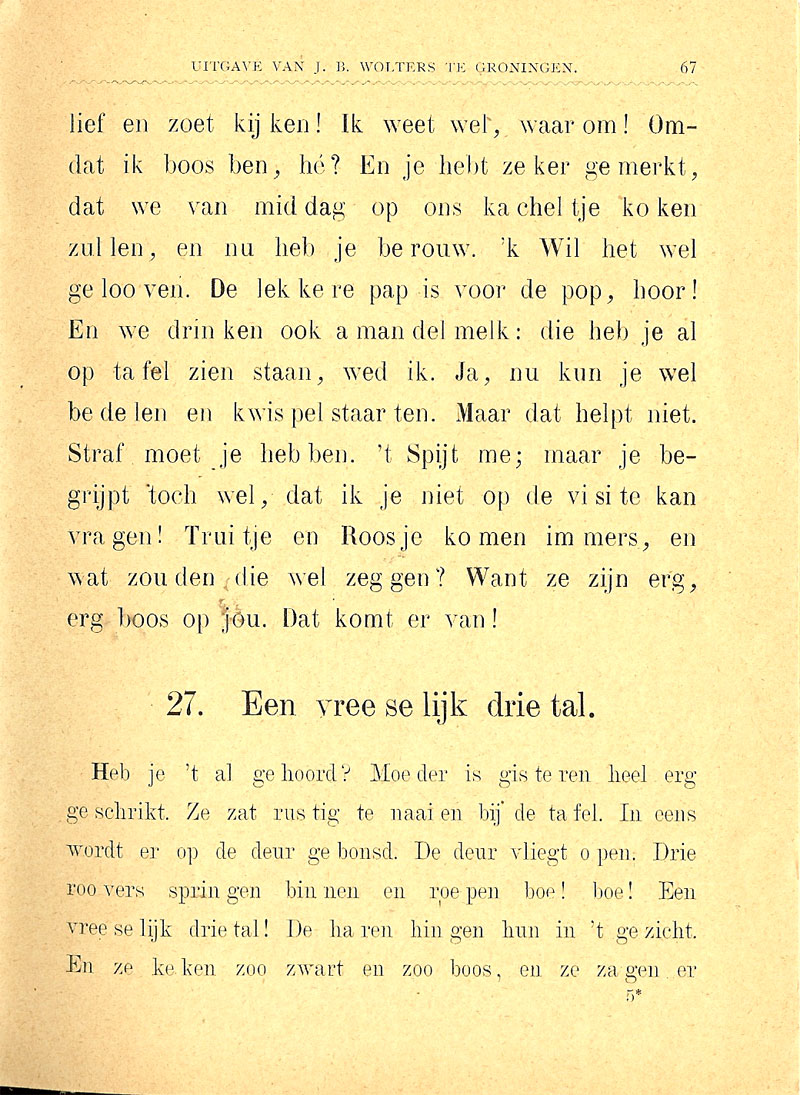 UITGAVE VAN J. B. WOLTERS TE GRONINGEN. 67
lief en zoet kij ken! Ik weet wel, waar om! Om-
dat ik boos ben, hé? En je hebt ze ker ge merkt,
dat we van mid dag op ons ka chel tje ko ken
zul len, en nu heb je be rouw. 'k Wil het wel
ge loo ven. De lek ke re pap is voor de pop, hoor!
En we drin ken ook a man del melk: die heb je al
op ta fel zien staan, wed ik. Ja, nu kun je wel
be de len en kwis pel staar ten. Maar dat helpt niet.
Straf moet je heb ben. 't Spijt me; maar je be-
grijpt toch wel, dat ik je niet op de vi si te kan
vra gen! Trui tje en Roos je ko men im mers, en
wat zou den die wel zeg gen? Want ze zijn erg,
erg boos op jou. Dat komt er van!
27. Een vree se lijk drie tal.
Heb je 't al ge hoord? Moe der is gis te ren heel erg
ge schrikt. Ze zat rus tig te naai en bij de ta fel. In eens
wordt er op de deur ge bonsd. De deur vliegt o pen. Drie
roo vers sprin gen bin nen en roe pen boe! boe! Een
vree se lijk drie tal! De ha ren hin gen hun in 't ge zicht.
En ze ke ken zoo zwart en zoo boos, en ze za gen er
5*